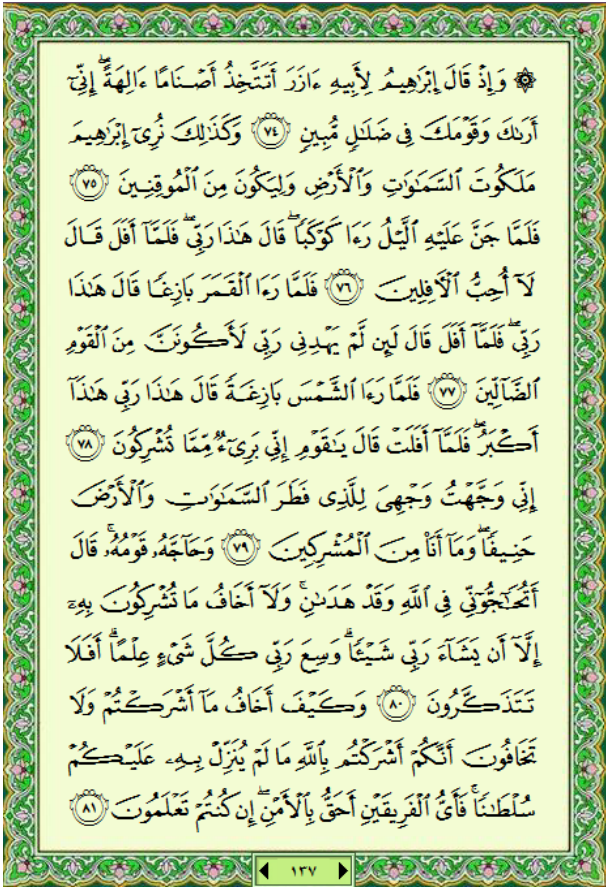 ۞ وَإِذۡ قَالَ إِبۡرَٰهِيمُ لِأَبِيهِ ءَازَرَ أَتَتَّخِذُ أَصۡنَامًا ءَالِهَةً إِنِّيٓ
أَرَىٰكَ وَقَوۡمَكَ فِي ضَلَٰلٖ مُّبِينٖ ٧٤ وَكَذَٰلِكَ نُرِيٓ إِبۡرَٰهِيمَ
مَلَكُوتَ ٱلسَّمَٰوَٰتِ وَٱلۡأَرۡضِ وَلِيَكُونَ مِنَ ٱلۡمُوقِنِينَ ٧٥
فَلَمَّا جَنَّ عَلَيۡهِ ٱلَّيۡلُ رَءَا كَوۡكَبٗاۖ قَالَ هَٰذَا رَبِّيۖ فَلَمَّآ أَفَلَ قَالَ
لَآ أُحِبُّ ٱلۡأٓفِلِينَ ٧٦ فَلَمَّا رَءَا ٱلۡقَمَرَ بَازِغٗا قَالَ هَٰذَا
رَبِّيۖ فَلَمَّآ أَفَلَ قَالَ لَئِن لَّمۡ يَهۡدِنِي رَبِّي لَأَكُونَنَّ مِنَ ٱلۡقَوۡمِ
ٱلضَّآلِّينَ ٧٧ فَلَمَّا رَءَا ٱلشَّمۡسَ بَازِغَةٗ قَالَ هَٰذَا رَبِّي هَٰذَآ
أَكۡبَرُۖ فَلَمَّآ أَفَلَتۡ قَالَ يَٰقَوۡمِ إِنِّي بَرِيٓءٞ مِّمَّا تُشۡرِكُونَ ٧٨
إِنِّي وَجَّهۡتُ وَجۡهِيَ لِلَّذِي فَطَرَ ٱلسَّمَٰوَٰتِ وَٱلۡأَرۡضَ
حَنِيفٗاۖ وَمَآ أَنَا۠ مِنَ ٱلۡمُشۡرِكِينَ ٧٩ وَحَآجَّهُۥ قَوۡمُهُۥۚ قَالَ
أَتُحَٰٓجُّوٓنِّي فِي ٱللَّهِ وَقَدۡ هَدَىٰنِۚ وَلَآ أَخَافُ مَا تُشۡرِكُونَ بِهِۦٓ
إِلَّآ أَن يَشَآءَ رَبِّي شَيۡـٔٗاۗ وَسِعَ رَبِّي كُلَّ شَيۡءٍ عِلۡمًاۚ أَفَلَا
تَتَذَكَّرُونَ ٨٠ وَكَيۡفَ أَخَافُ مَآ أَشۡرَكۡتُمۡ وَلَا
تَخَافُونَ أَنَّكُمۡ أَشۡرَكۡتُم بِٱللَّهِ مَا لَمۡ يُنَزِّلۡ بِهِۦ عَلَيۡكُمۡ
سُلۡطَٰنٗاۚ فَأَيُّ ٱلۡفَرِيقَيۡنِ أَحَقُّ بِٱلۡأَمۡنِۖ إِن كُنتُمۡ تَعۡلَمُونَ ٨١
١٣٧